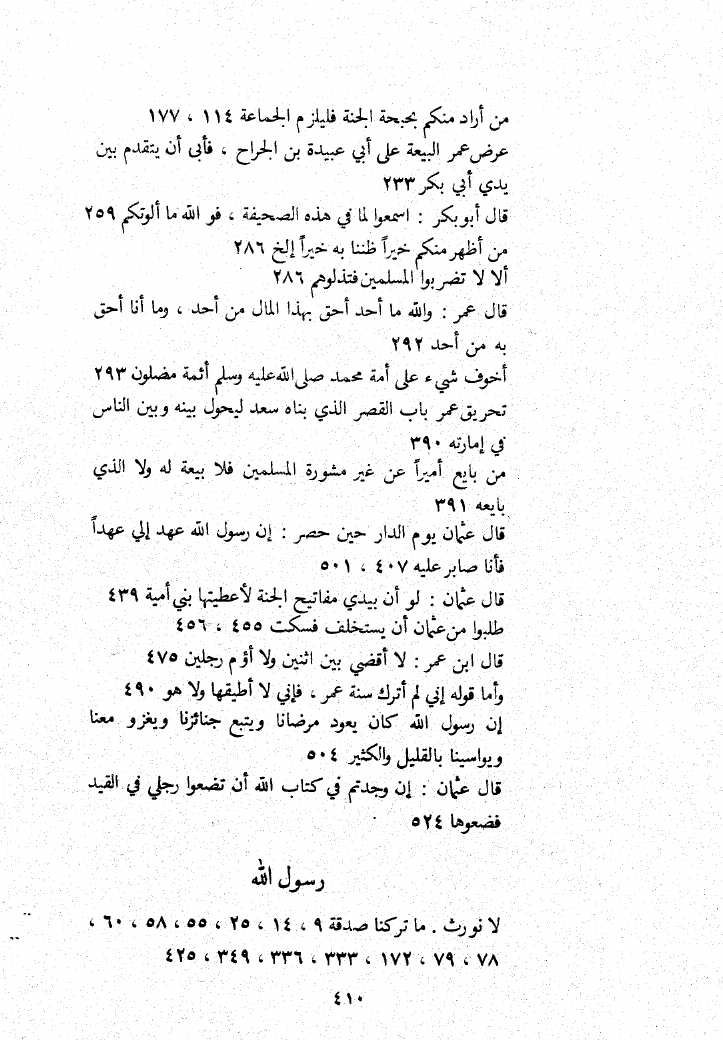 من أراد منكم بحبحة الجنة فليلزم الجماعة ١١٤ ، ١٧٧
عرض عمر البيعة على أبي عبيدة بن الجراح ، فأبى أن يتقدم بين
يدي أبي بكر ٢٣٣
قال أبو بكر : اسمعوا لما في هذه الصحيفة ، فو الله ما ألوتكم ٢٥٩
من أظهر منكم خيراً ظننا به خيراً إلخ ٢٨٦
ألا لا تضربوا المسلمين فتذلوهم ٢٨٦
قال عمر : والله ما أحد أحق بهذا المال من أحد ، وما أنا أحق
به من أحد ٢٩٢
أخوف شيء على أمة محمد صلى الله عليه وسلم أئمة مضلون ٢٩٣
تحريق عمر باب القصر الذي بناه سعد ليحول بينه وبين الناس
في إمارته ٣٩٠
من بايع أميراً عن غير مشورة المسلمين فلا بيعة له ولا الذي
بايعه ٣٩١
قال عثمان يوم الدار حين حصر : إن رسول الله عهد إلي عهداً
فأنا صابر عليه ٤٠٧ ، ٥٠١
قال عثمان : لو أن بيدي مفاتيح الجنة لأعطيتها بني أمية ٤٣٩
طلبوا من عثمان أن يستخلف فسكت ٤٥٥ ، ٤٥٦
قال ابن عمر : لا أقضي بين اثنين ولا أؤم رجلين ٤٧٥
وأما قوله إني لم أترك سنة عمر ، فإني لا أطيقها ولا هو ٤٩٠
إن رسول الله كان يعود مرضانا ويتبع جنائزنا ويغزو معنا
ويواسينا بالقليل والكثير ٥٠٤
قال عثمان : إن وجدتم في كتاب الله أن تضعوا رجلي في القيد
فضعوها ٥٢٤
رسول الله
لا نورث . ما تركنا صدقة ٩ ، ١٤ ، ٢٥ ، ٥٥ ، ٥٨ ، ٦٠ ،
٧٨ ، ٧٩ ، ١٧٢ ، ٣٣٣ ، ٣٣٦ ، ٣٤٩ ، ٤٢٥
٤١٠